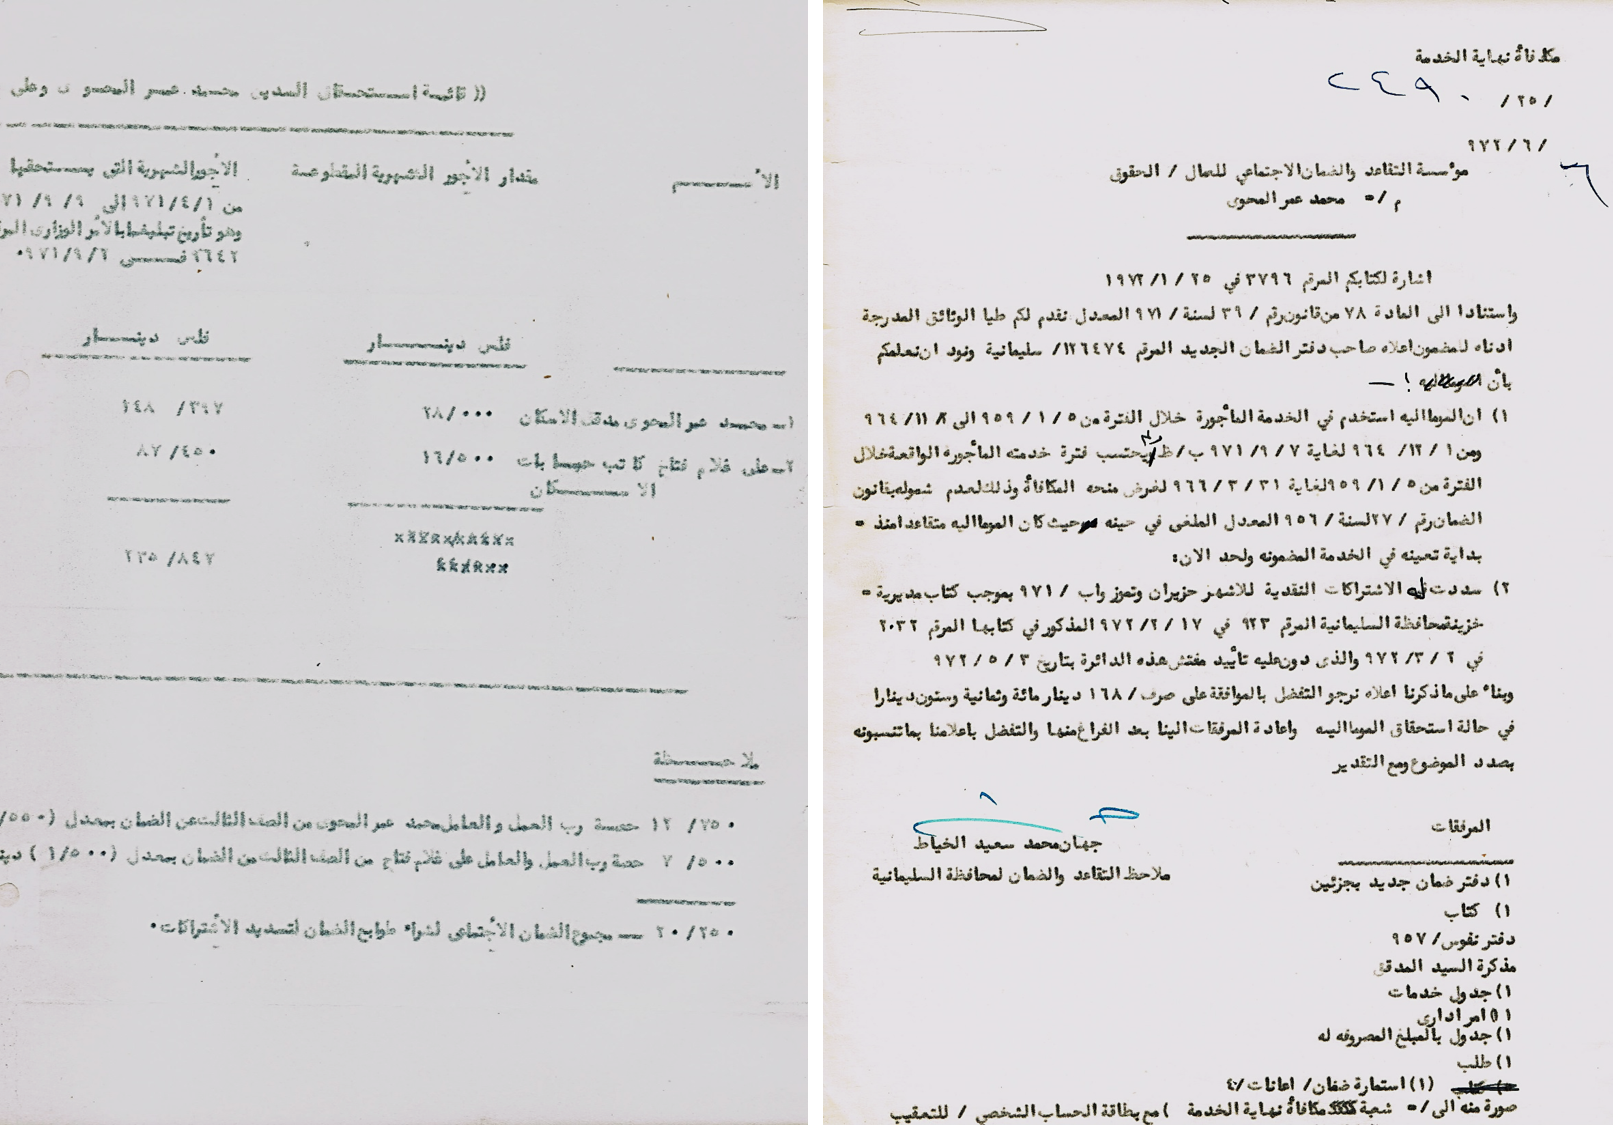 مكافأة نهاية الخدمة
/ ٢٥ / ٢٤٩٠
/ ٦ / ٩٧٢
مؤسسة التقاعد والضمان الاجتماعي للعمال / الحقوق
م / = محمد عمر المحوى
اشارة لكتابكم المرقم ٣٧٩٦ في ٢٥ / ١ / ١٩٧٢
واستنادا الى المادة ٧٨ من قانون رقم / ٣٩ لسنة / ٩٧١ المعدل نقدم لكم طيا الوثائق المدرجة
ادناه للمضمون اعلاه صاحب دفتر الضمان الجديد المرقم ١٢٦٤٧٤/ سليمانية ونود ان نعلمكم
بأن
١) ان الموما اليه استخدم في الخدمة المأجورة خلال الفترة من ٥ / ١ / ٩٥٩ الى ٢ / ١١ / ٩٦٤
ومن ١ / ١٢ / ٩٦٤ لغاية ٧ / ٩ / ٩٧١ ب / ظ يحتسب فترة خدمته المأجوره الواقعة خلال
الفترة من ٥ / ١ / ٩٥٩ لغاية ٣١ / ٣ / ٩٦٦ لغرض منحه المكافأة وذلك لعدم شموله بقانون
الضمان رقم / ٢٧ لسنة / ٩٥٦ المعدل الملغى في حينه حيث كان الموما اليه متقاعدا منذ =
بداية تعيينه في الخدمة المضمونه ولحد الان:
٢) سددت له الاشتراكات النقدية للاشهر حزيران وتموز واب / ٩٧١ بموجب كتاب مديرية =
خزينة محافظة السليمانية المرقم ٩٢٣ في ١٧ / ٢ / ٩٧٢ المذكور في كتابها المرقم ٢٠٣٢
في ٢ / ٣ / ٩٧٢ والذى دون عليه تأييد مفتش هذه الدائرة بتاريخ ٣ / ٥ / ٩٧٢
وبناء على ماذكرنا اعلاه نرجو التفضل بالموافقة على صرف / ١٦٨ دينار مائة وثمانية وستون دينارا
في حالة استحقاق الموما اليه واعادة المرفقات الينا بعد الفراغ منها والتفضل باعلامنا بما تنسبونه
بصدد الموضوع ومع التقدير
جهان محمد سعيد الخياط
ملاحظ التقاعد والضمان لمحافظة السليمانية
المرفقات
١) دفتر ضمان جديد بجزئين
١) كتاب
دفتر نفوس / ٩٥٧
مذكرة السيد المدقق
١) جدول خدمات
١) امر ادارى
١) جدول بالمبلغ المصروفه له
١) طلب
(١) استمارة ضمان/ اعانات/٤
صورة منه الى / = شعبة مكافأة نهاية الخدمة ) مع بطاقة الحساب الشخصي / للتعقيب
(( قائمة استحقاق السيدين محمد عمر المحوى وعلى
الاسم مقدار الأجور الشهرية المقطوعة الأجور الشهرية التى يستحقها
من ٩٧١/٤/١ الى ٩ / ٩ /
وهو تأريخ تبليغها بالأمر الوزارى
٩٦٤٢ فى ٩٧١/٩/٦٠
فلس دينار فلس دينار
١ـ محمد عمر المحوى مدقق الاسكان ٢٨/٠٠٠ ١٤٨ /٣٩٧
٢ـ على غلام فتاح كاتب حسابات ١٦/٥٠٠ ٨٧ /٤٥٠
الاسكان
٢٣٥ /٨٤٧
ملاحظة
١٢ /٧٥٠ حصة رب العمل والعامل محمد عمر المحوى من الصف الثالث عن الضمان بمعدل (
٧ /٥٠٠ حصة رب العمل والعامل على غلام فتاح من الصف الثالث من الضمان بمعدل (١/٥٠٠ )
٢٠ /٢٥٠ ــ مجموع الضمان الأجتماعى لشراء طوابع الضمان لتسديد الأشتراكات٠